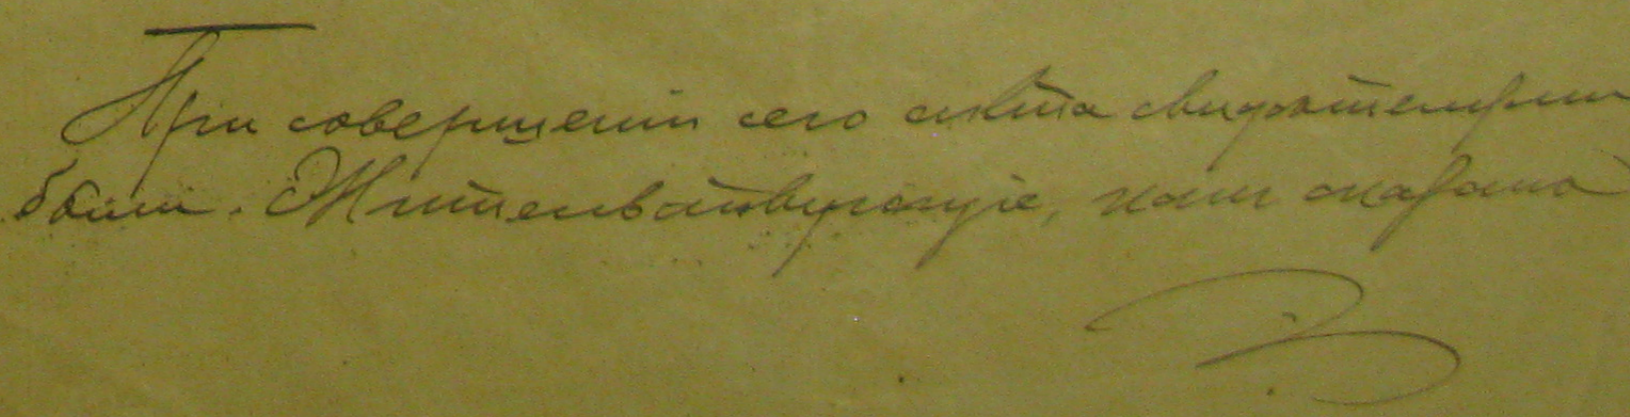 При совершении сего акта свидетелями
были: Жительствующие, как сказано